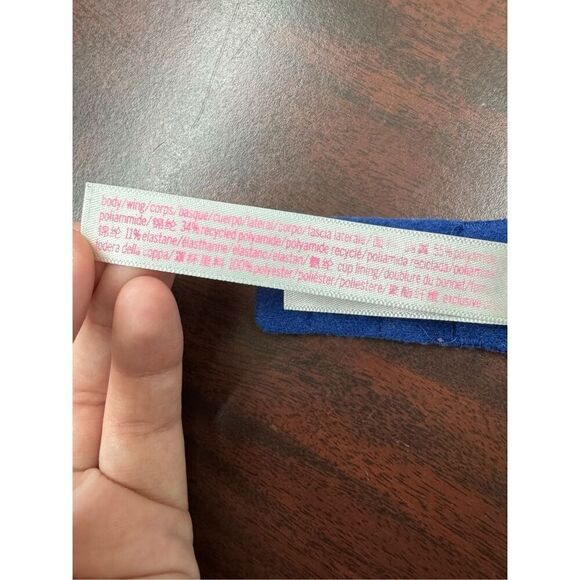 body/wing/corps, basque/cuerpo/lateral/corpo/fascia laterale/ 55% polyamide
poliammide/锦纶 34% recycled polyamide/polyamide recyclé/poliamida reciclada/poliammid
锦纶 11% elastane/élasthanne/elastano/elastan/氨纶 cup lining/doublure du bonnet/forro
odera della coppa/罩杯里料 100% polyester/poliéster/poliestere/聚酯纤维 exclusive